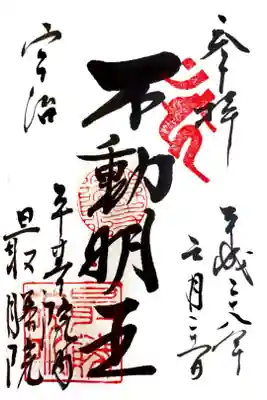 奉拝
平成二八年
不動明王
宇治
平等院内
最勝院